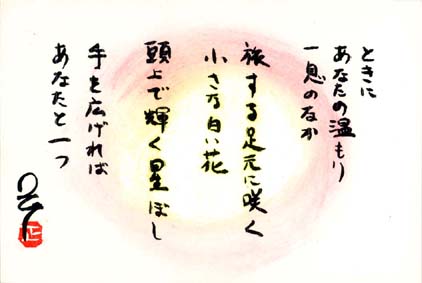 ときに
あなたの温もり
一息のなか
旅する足元に咲く
小さな白い花
頭上で輝く星ぼし
手を広げれば
あなたと一つ